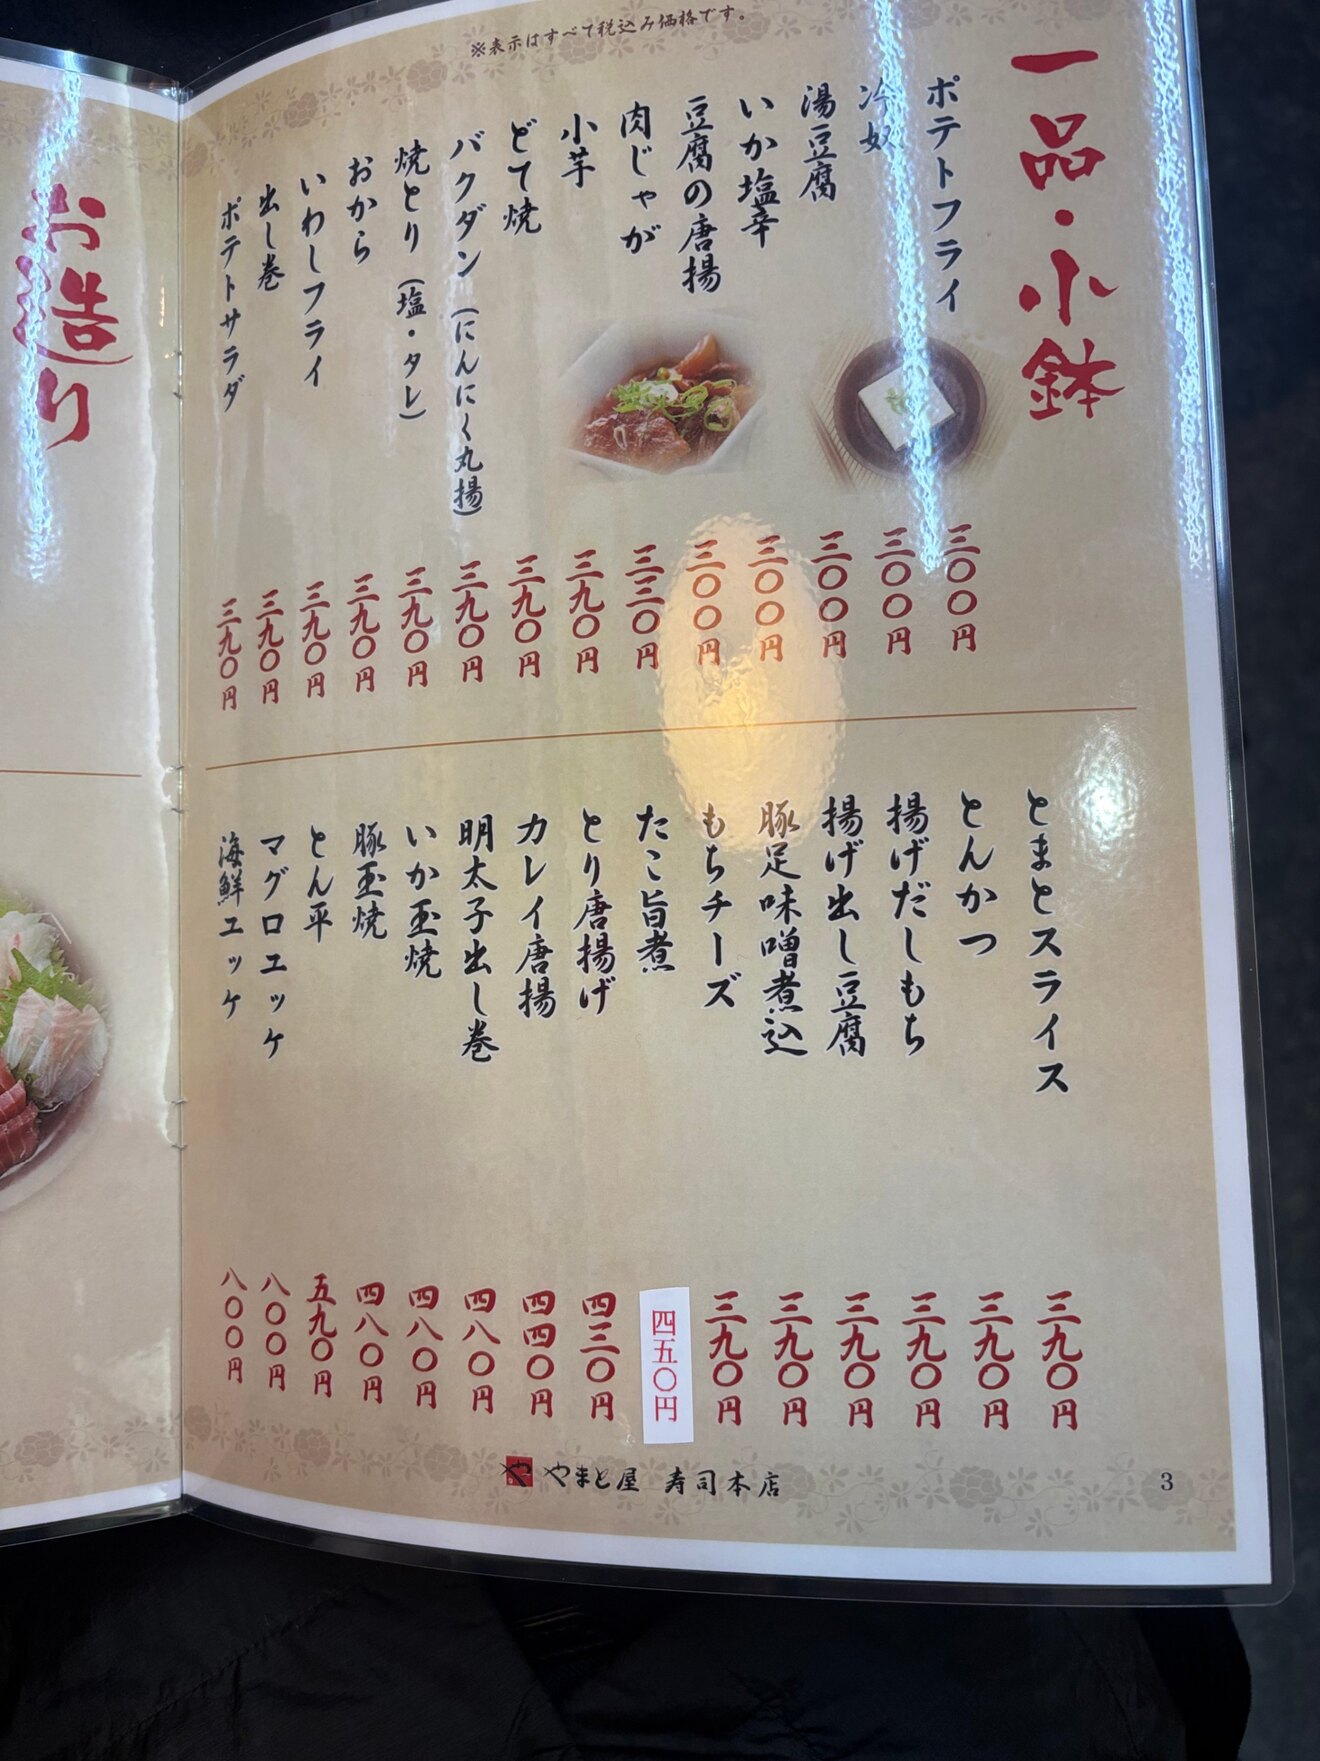 ※表示はすべて税込み価格です。
一品・小鉢
ポテトフライ 三〇〇円
冷奴 三〇〇円
湯豆腐 三〇〇円
いか塩辛 三〇〇円
豆腐の唐揚 三〇〇円
肉じゃが 三三〇円
小芋 三九〇円
どて焼 三九〇円
バクダン(にんにく丸揚) 三九〇円
焼とり(塩・タレ) 三九〇円
おから 三九〇円
いわしフライ 三九〇円
出し巻 三九〇円
ポテトサラダ 三九〇円
とまとスライス 三九〇円
とんかつ 三九〇円
揚げだしもち 三九〇円
揚げ出し豆腐 三九〇円
豚足味噌煮込 三九〇円
もちチーズ 三九〇円
たこ旨煮 四五〇円
とり唐揚げ 四三〇円
カレイ唐揚 四四〇円
明太子出し巻 四八〇円
いか玉焼 四八〇円
豚玉焼 四八〇円
とん平 五九〇円
マグロユッケ 八〇〇円
海鮮ユッケ 八〇〇円
や やまと屋 寿司本店
3
お造り